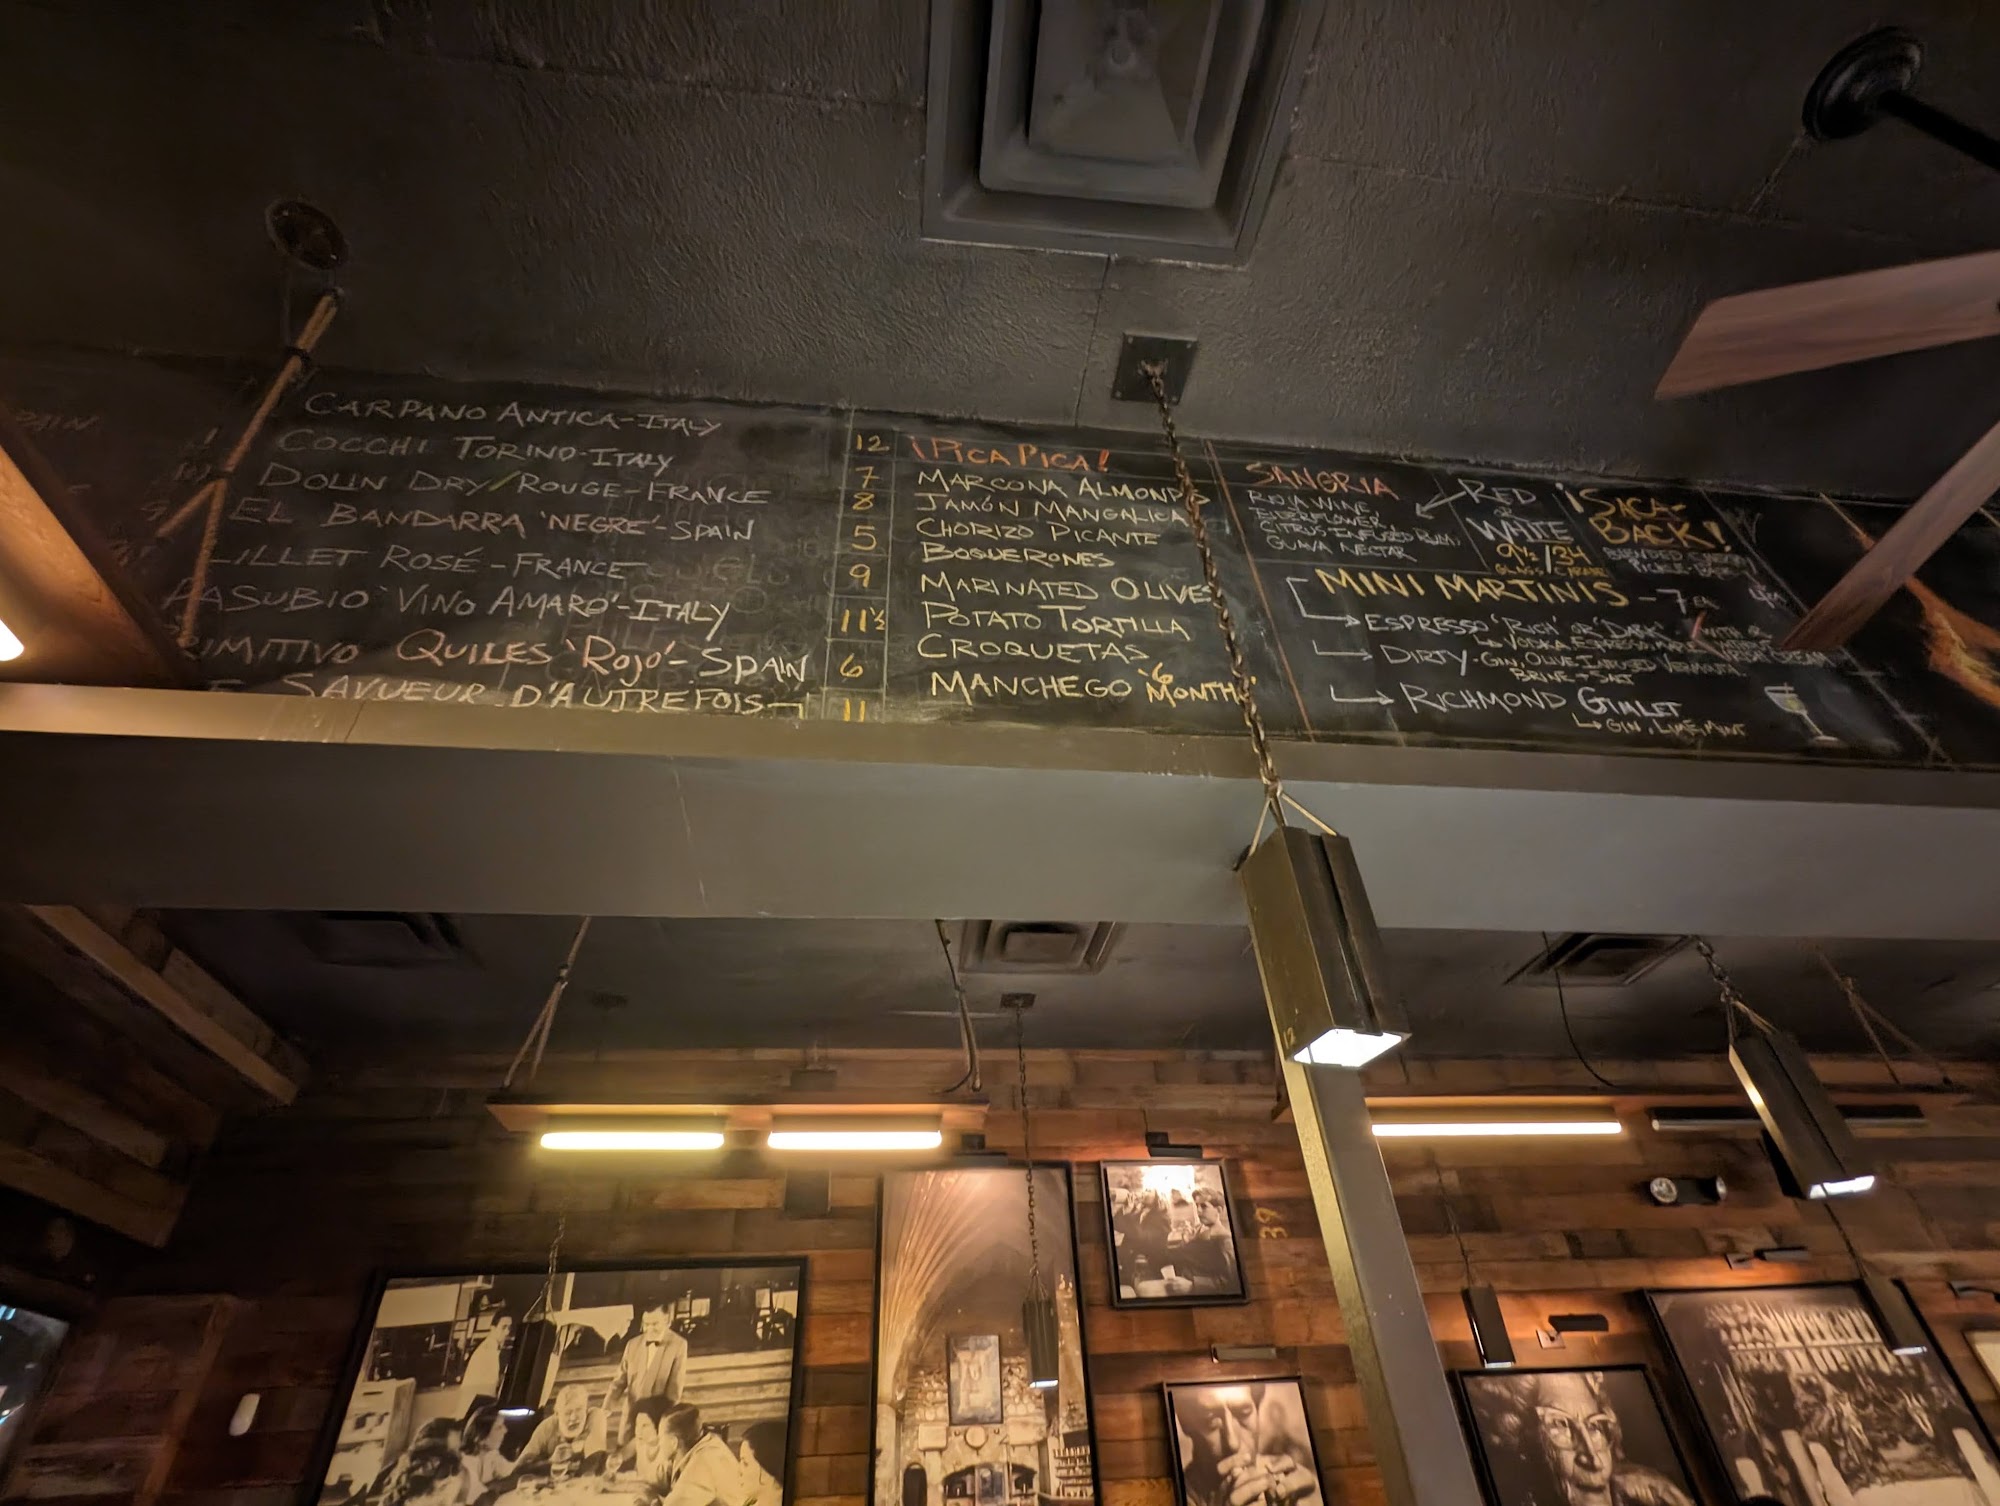 CARPANO ANTICA-ITALY
COCCHI TORINO-ITALY
DOLIN DRY/ROUGE-FRANCE
EL BANDARRA 'NEGRE'-SPAIN
LILLET ROSÉ-FRANCE
PASUBIO 'VINO AMARO'-ITALY
PRIMITIVO QUILES 'ROJO'-SPAIN
SAVUEUR D'AUTREFOIS
12
7
8
5
9
11½
6
11
¡PICA PICA!
MARCONA ALMONDS
JAMÓN MANGALICA
CHORIZO PICANTE
BOQUERONES
MARINATED OLIVES
POTATO TORTILLA
CROQUETAS
MANCHEGO '6 MONTH'
SANGRIA
RIOJA WINE,
ELDERFLOWER,
CITRUS-INFUSED RUM,
GUAVA NECTAR
RED
WHITE
9½/34
GLASS/CARAFE
¡SICA-
BACK!
BLENDED
PICKLE-BACK
MINI MARTINIS -7 EA
ESPRESSO 'RICH' OR 'DARK'
VODKA, ESPRESSO,
DIRTY-GIN, OLIVE INFUSED VERMOUTH,
BRINE + SALT
RICHMOND GIMLET
GIN, LIME, MINT
12
39